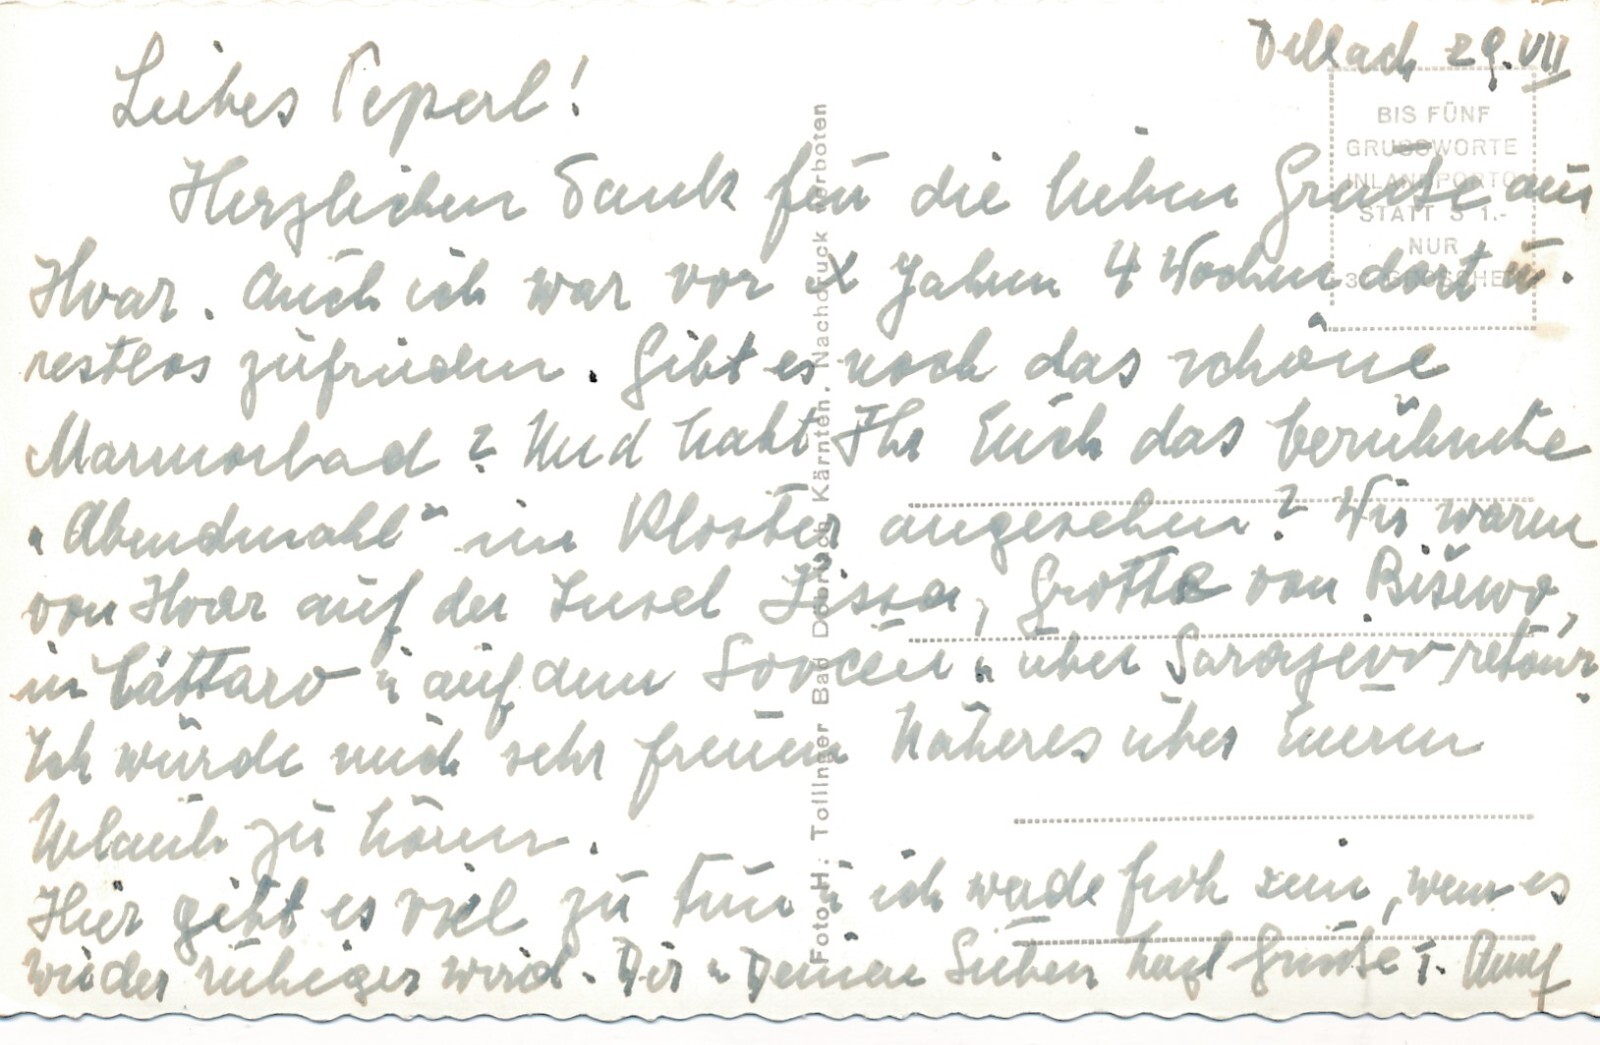 Dellach 29.VII
BIS FÜNF
GRUSSWORTE
INLANDPORTO
STATT S 1.-
NUR
30 GROSCHEN
Liebes Peperl!
Herzlichen Dank für die lieben Grüße aus
Hvar. Auch ich war vor X Jahren 4 Wochen dort u.
restlos zufrieden. Gibt es noch das schöne
Marmorbad? Und habt Ihr Euch das berühmte
„Abendmahl" im Kloster angesehen? Wir waren
von Hvar auf der Insel Lissa, Grotte von Biševo,
in Cattaro u. auf dem Lovcen u. über Sarajevo retour.
Ich würde mich sehr freuen Näheres über Euren
Urlaub zu hören.
Hier gibt es viel zu tun u. ich werde froh sein, wenn es
wieder ruhiger wird. Dir u. Deinen Lieben herzl Grüße
Foto H. Tollinger Bad Dobrach, Kärnten. Nachdruck verboten